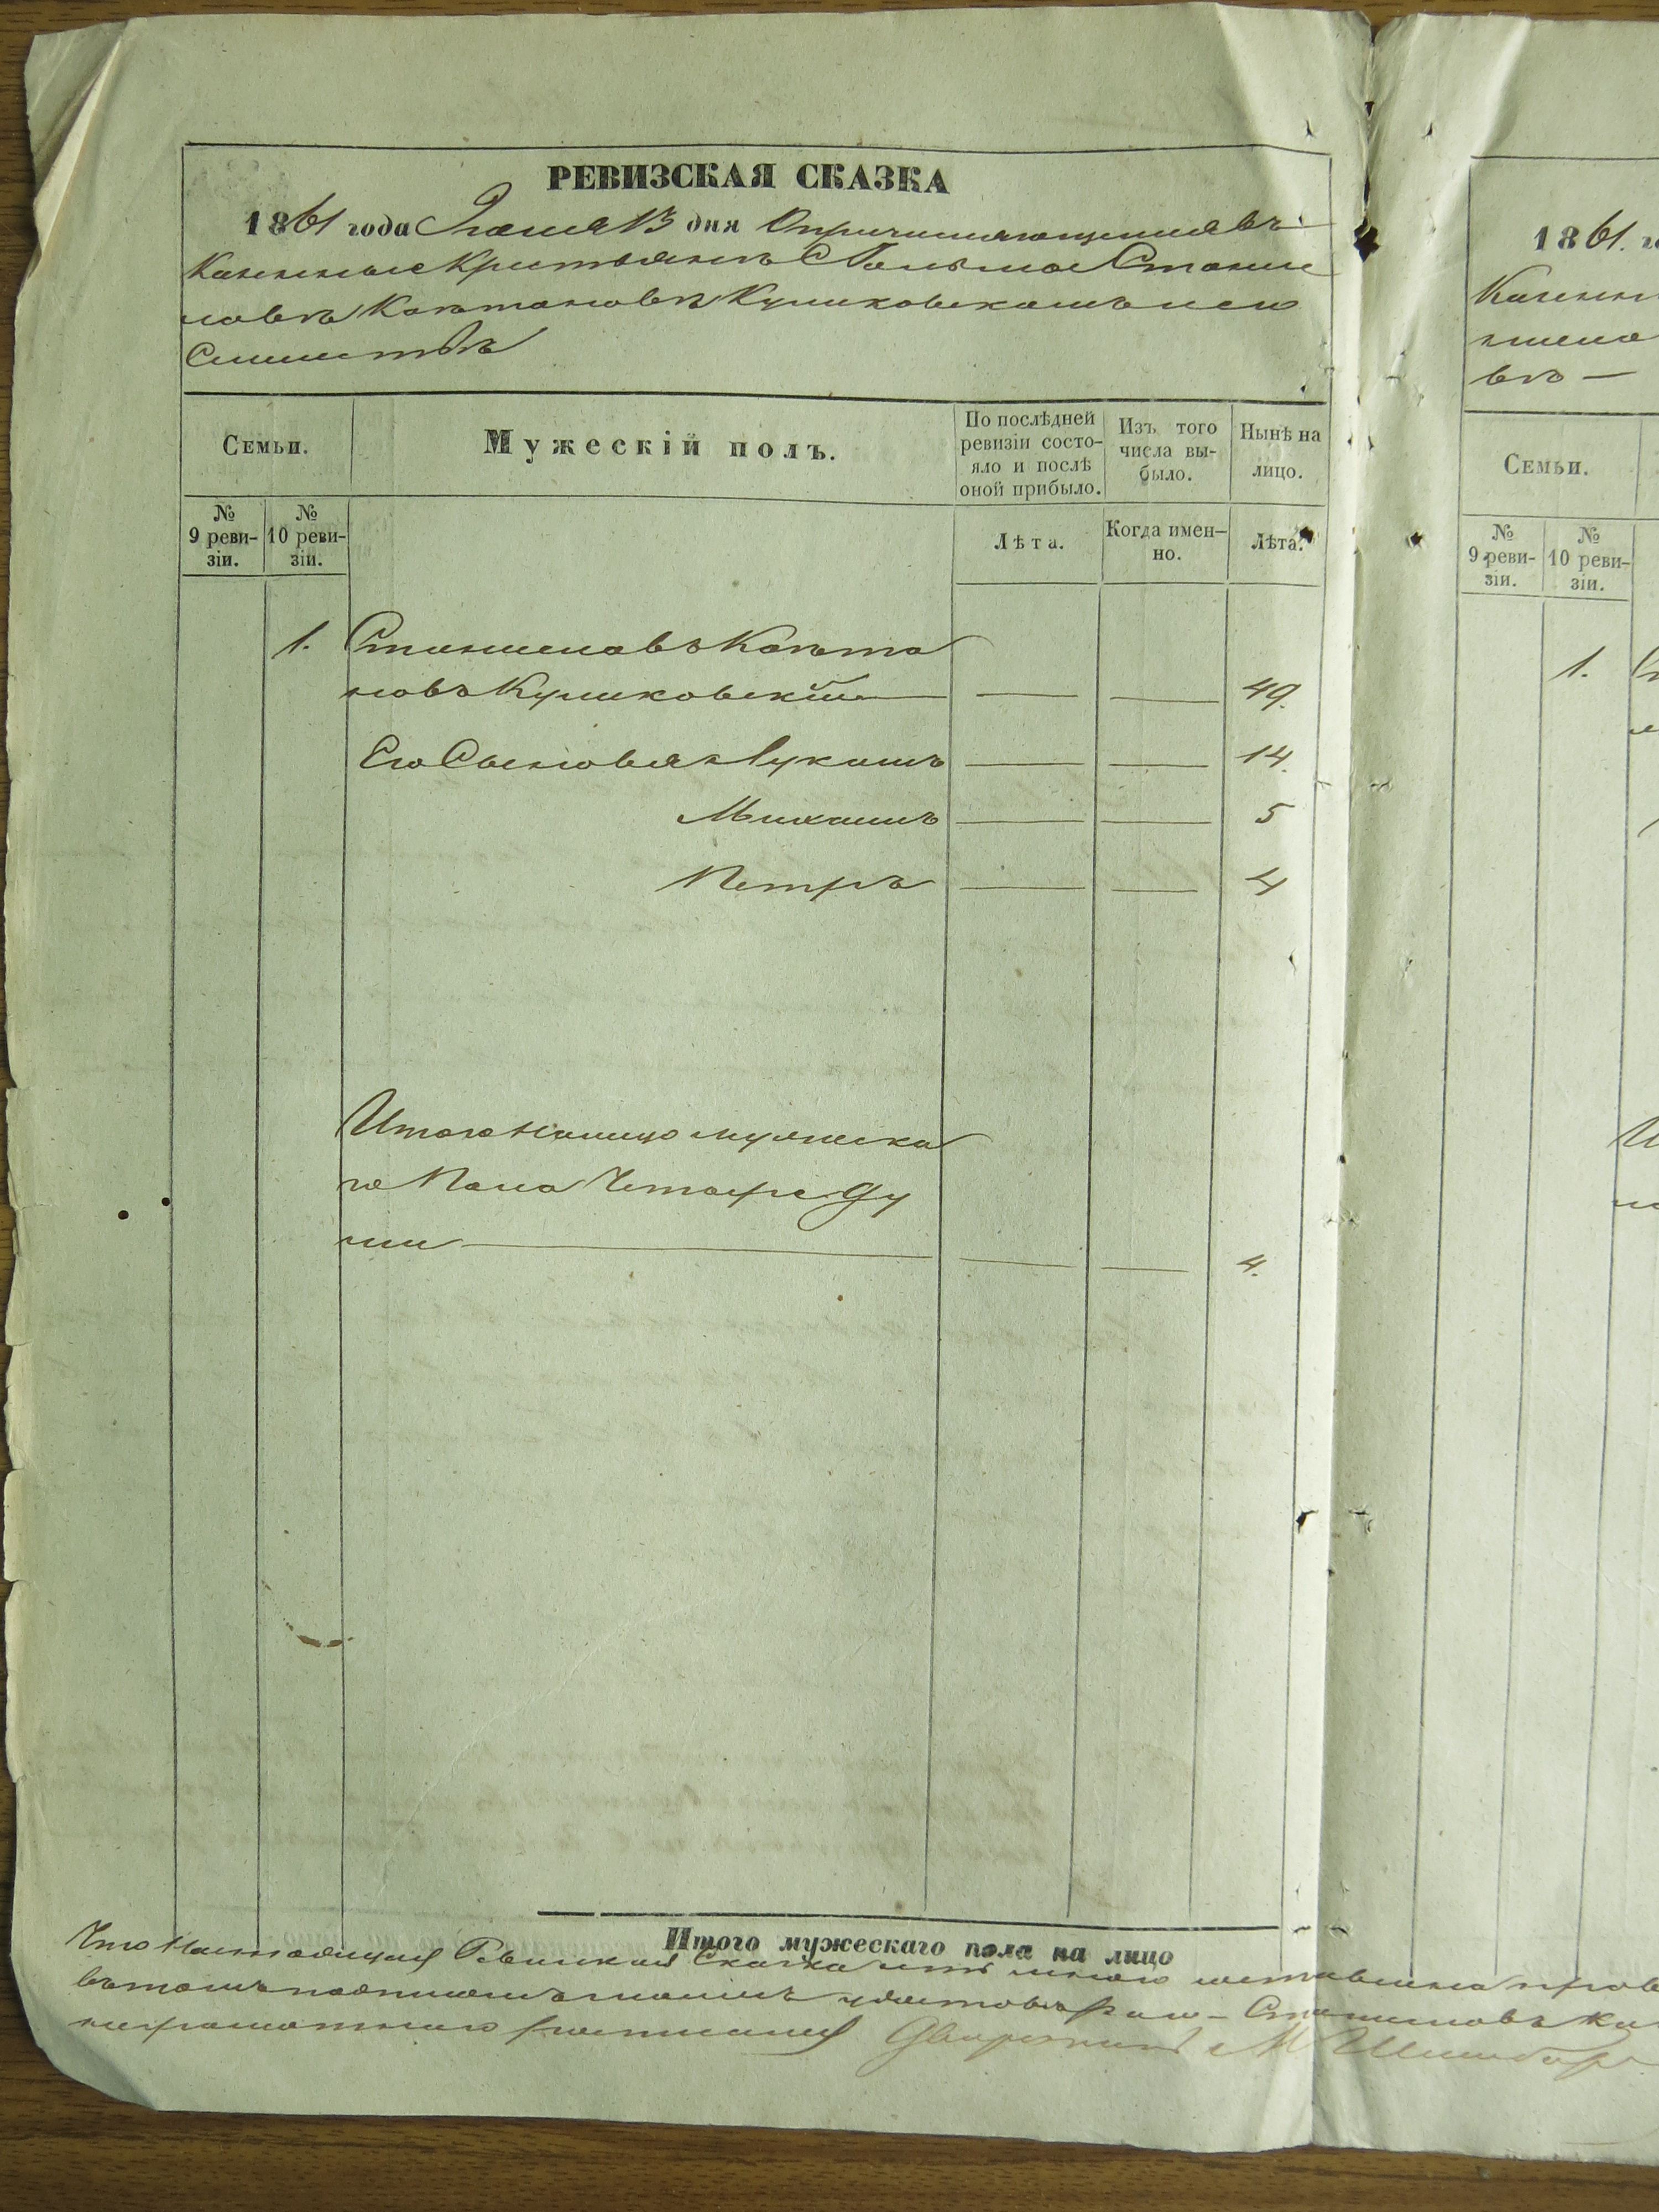 РЕВИЗСКАЯ СКАЗКА
1861 года Маія 13 дня О причисляющемся въ
Казенные Крестьяне С Станис
лавѣ Каетановѣ Куликовскомъ и его
Семействѣ
Семьи.
Мужескій полъ.
По послѣдней ревизіи состо-
яло и послѣ
оной прибыло.
Изъ того
числа вы-
было.
Нынѣ на
лицо.
№
9 реви-
зіи.
№
10 реви-
зіи.
Лѣта.
Когда имен-
но.
Лѣта.
1. Станиславъ Каета
новъ Куликовскій — — 49.
Его Сыновья Лукашъ — — 14.
Михаилъ — — 5
Петръ — — 4
Итого налицо мужеска
го Пола Четыре Ду
ши — — — 4.
Итого мужескаго пола на лицо
Что Настоящая Ревизская Сказка мною составлена
въ томъ подписомъ удостовѣряю – Станиславъ
неграмотнаго росписался Дворянинъ
1861.
Казенн
вѣ —
Семьи.
№
9 реви-
зіи.
№
10 реви-
зіи.
1.